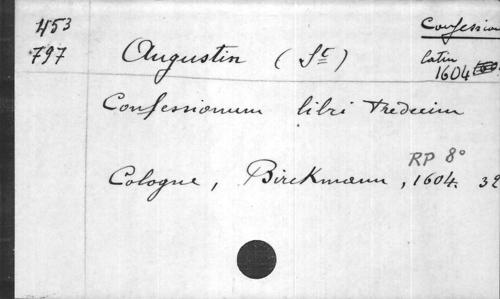 453
797
Confession
Augustin (St)
Latin
1604
Confessionum libri Tredecim
RP 8°
Cologne, Birckmann, 1604. 32